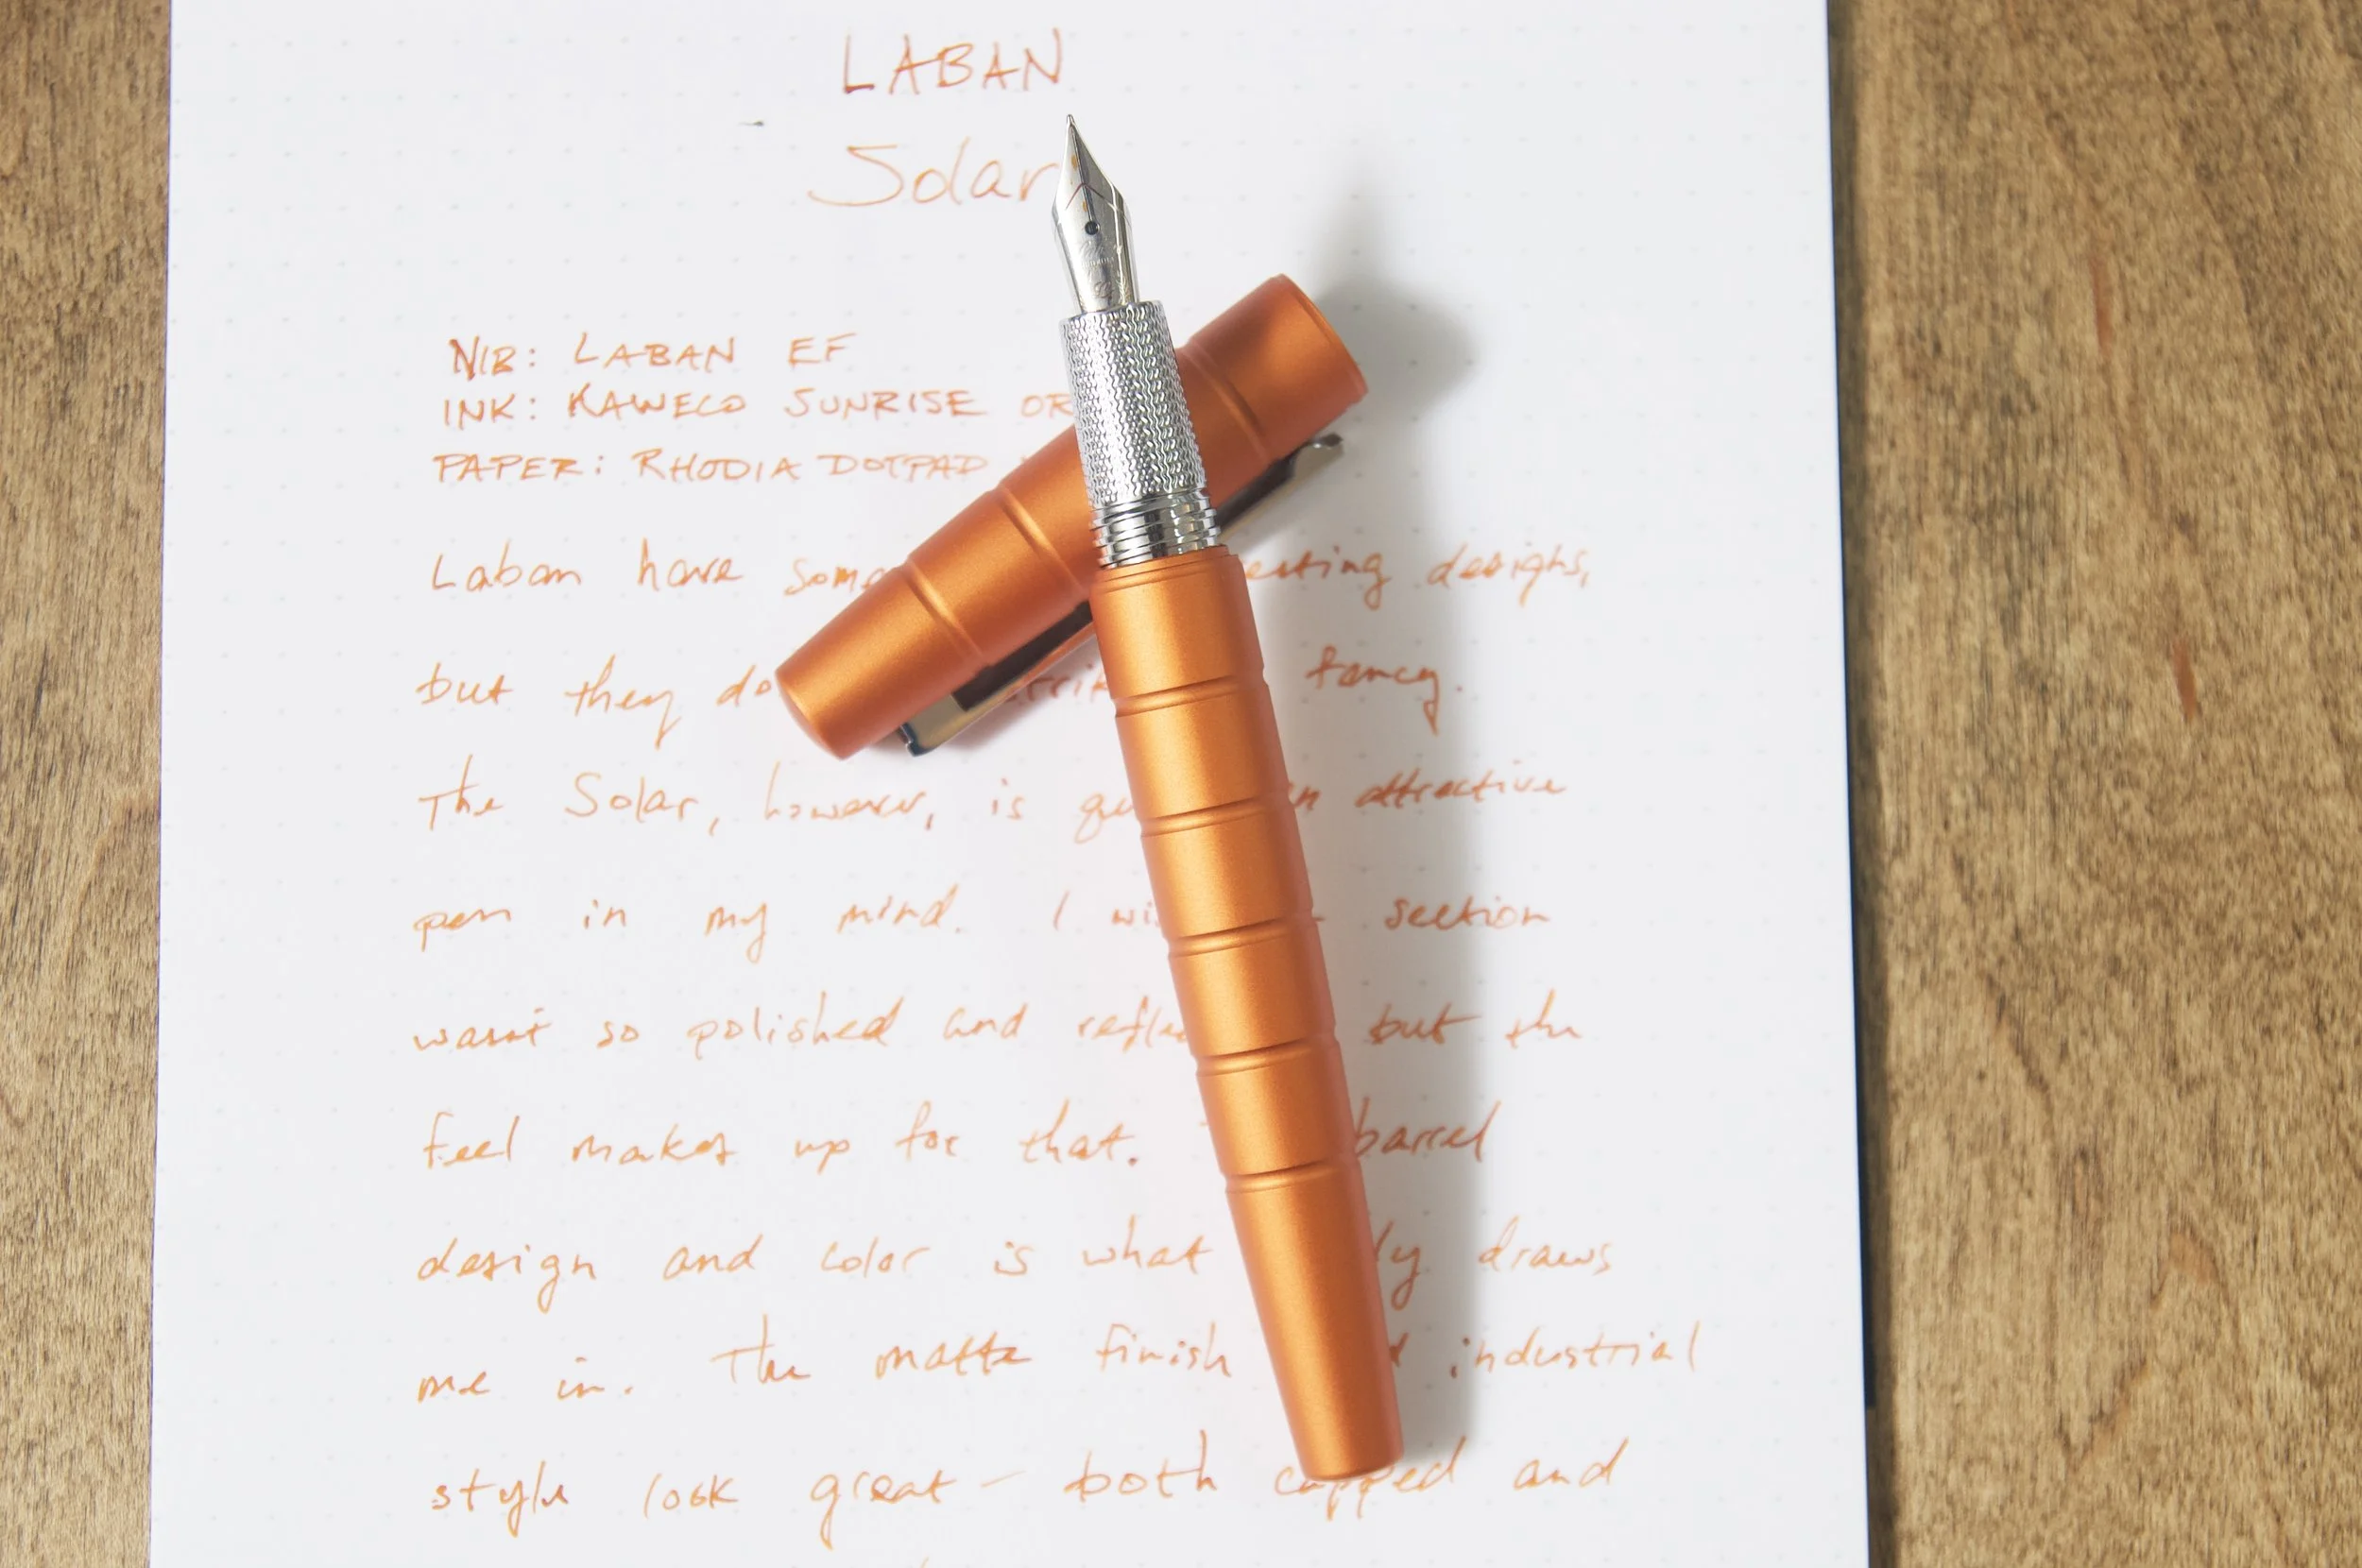 LABAN
Solar
NIB: LABAN EF
INK: KAWECO SUNRISE OR
PAPER: RHODIA DOTPAD
Laban have some esting designs,
but they do fancy.
The Solar, however, is qu an attractive
pen in my mind. I wis section
wasnt so polished and refle but the
feel makes up for that. barrel
design and color is what ly draws
me in. The matte finish industrial
style look great - both capped and